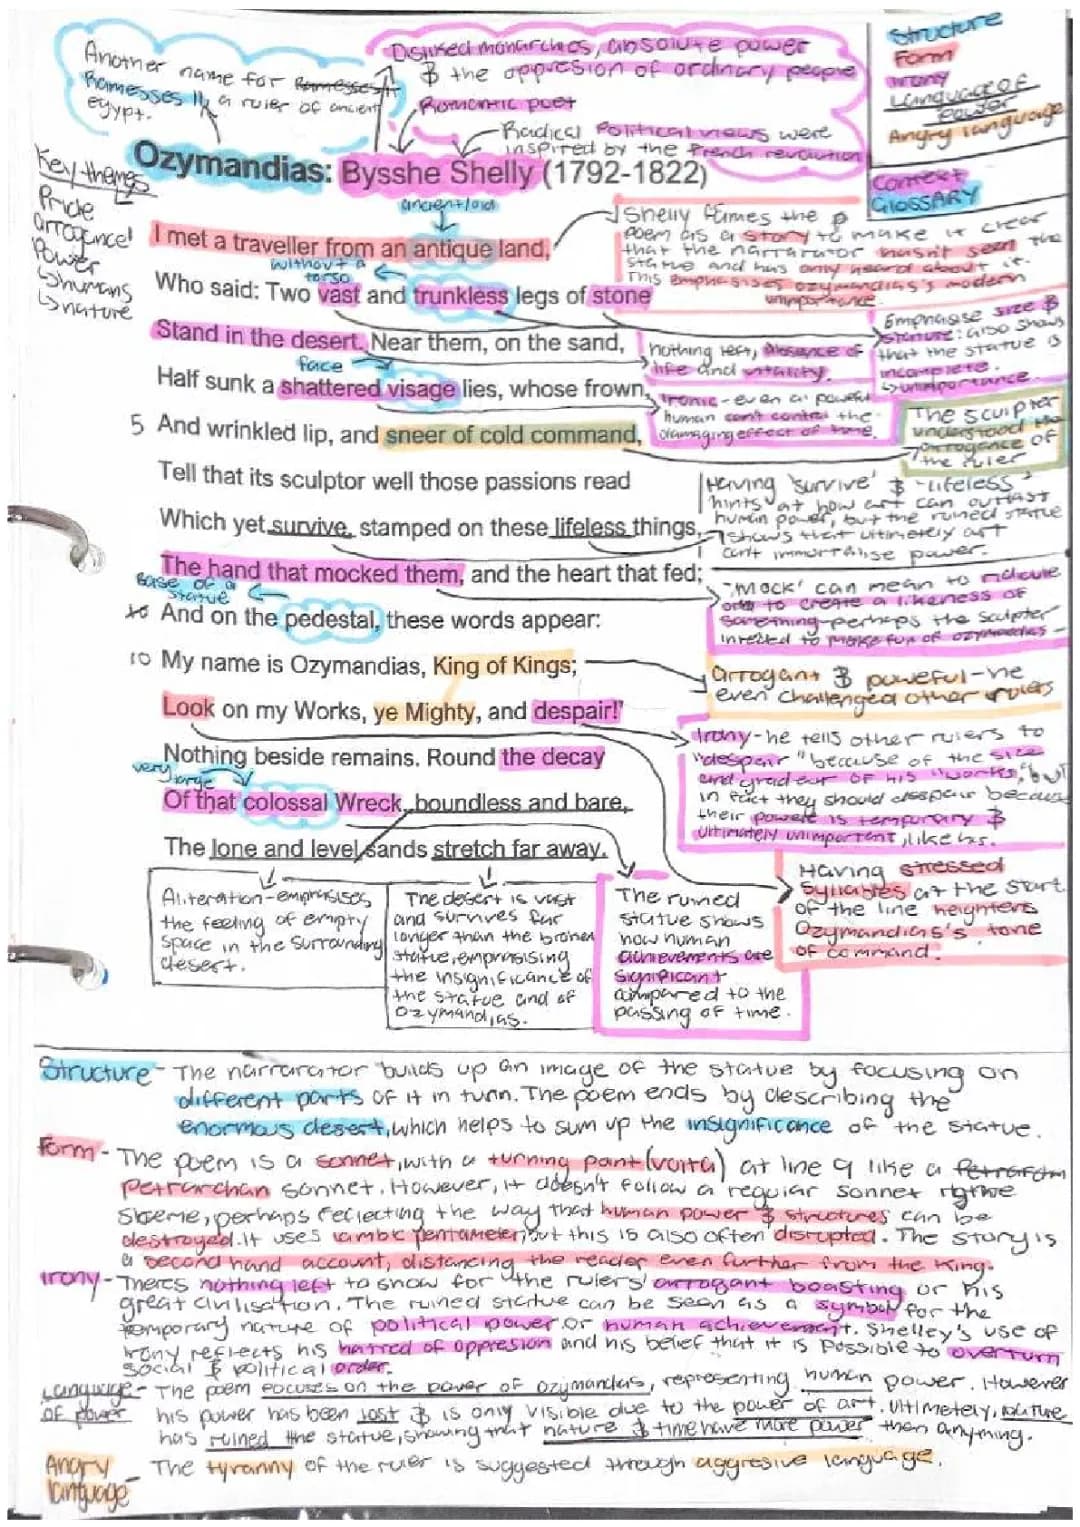 Another name for Ramesses II
Ramesses II, a ruler of ancient
egypt.
Disliked monarchies, absolute power
& the oppresion of ordinary people
Romantic poet
Radical political views were
inspired by the French revolution
Structure
Form
Irony
Language of
Power
Angry language
Context
GLOSSARY
Ozymandias: Bysshe Shelly (1792-1822)
Key themes
Pride
arrogance!
Power
↳humans
↳nature
ancient/old
I met a traveller from an antique land,
Shelly fames the
poem as a story to make it clear
that the narrarator hasn't seen the
statue and has only heard about it.
This emphasises ozymandias's modern
unimportance.
without a
torso
Who said: Two vast and trunkless legs of stone
Emphasise size &
stature: also shows
that the statue is
incomplete.
↳unimportance
Stand in the desert. Near them, on the sand,
nothing left, absence of
life and vitality.
face
Half sunk a shattered visage lies, whose frown,
Ironic - even a powerful
human can't control the
damaging effect of time.
5 And wrinkled lip, and sneer of cold command,
The sculpter
understood the
arrogance of
the ruler
Tell that its sculptor well those passions read
Having 'survive' & 'lifeless'
hints at how art can outlast
human power, but the ruined statue
shows that ultimetely art
can't immortalise power.
Which yet survive, stamped on these lifeless things,
The hand that mocked them, and the heart that fed;
'Mock' can mean to ridicule
or to create a likeness of
something-perhaps the sculpter
intended to make fun of ozymandias
Base of a
statue
And on the pedestal, these words appear:
10 My name is Ozymandias, King of Kings;
Arrogant & powerful-he
even challenged other rulers
Look on my Works, ye Mighty, and despair!'
Irony-he tells other rulers to
"despair" because of the size
and gradeur of his "works," but
in fact they should despair because
their power is temporary &
ultimately unimportant, like his.
Nothing beside remains. Round the decay
very large
Of that colossal Wreck, boundless and bare,
The lone and level sands stretch far away.
Having stressed
syllables at the start
of the line heightens
Ozymandias's tone
of command.
Aliteration-emphasises
the feeling of empty
space in the surrounding
desert.
The desert is vast
and survives far
longer than the broken
statue, emphasising
the insignificance of
the statue and of
Ozymandias.
The ruined
statue shows
how human
achievements are
significant
compared to the
passing of time.
Structure - The narrarator builds up an image of the statue by focusing on
different parts of it in turn. The poem ends by describing the
enormous desert, which helps to sum up the insignificance of the statue.
Form - The poem is a sonnet, with a turning point (volta) at line 9 like a
Petrarchan sonnet. However, it doesn't follow a regular sonnet rythme
skeme, perhaps reflecting the way that human power & structures can be
destroyed. It uses iambic pentameter, but this is also often disrupted. The story is
a second hand account, distancing the reader even further from the King.
Irony - Theres nothing left to show for the rulers' arrogant boasting or his
great civilisation. The ruined statue can be seen as a symbol for the
temporary nature of political power or human achievement. Shelley's use of
irony reflects his hatred of oppresion and his belief that it is possible to overturn
social & political order.
Language - The poem focuses on the power of Ozymandias, representing human power. However
of power his power has been lost & is only visible due to the power of art. Ultimetely, nature
has ruined the statue, showing that nature & time have more power than anything.
Angry - The tyranny of the ruler is suggested through aggresive language.
language